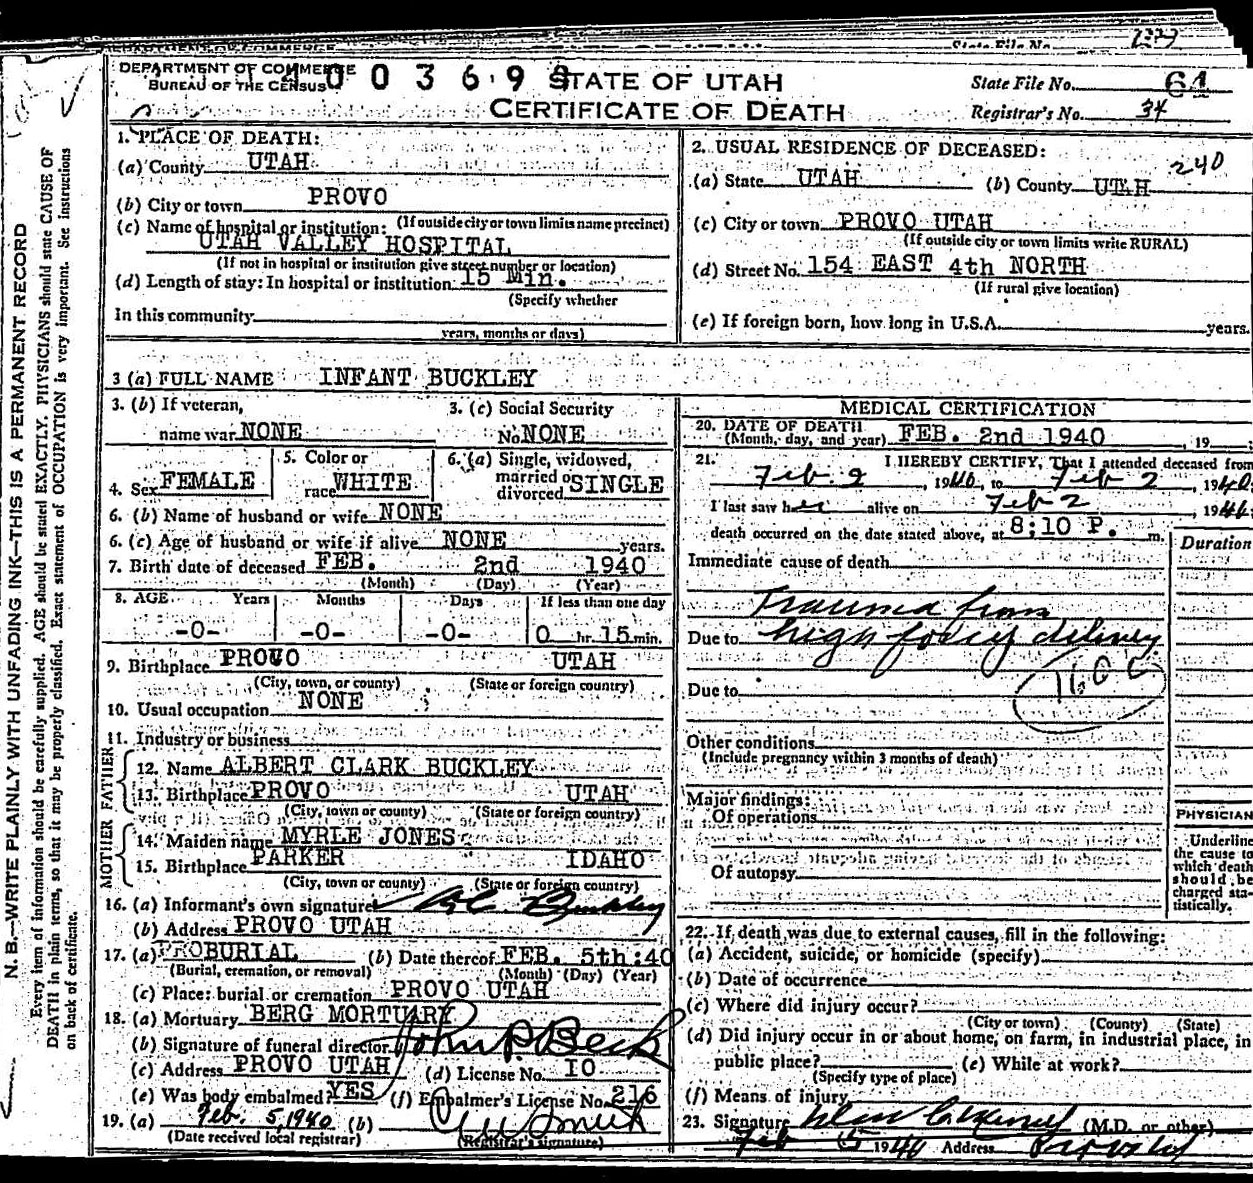 State File No.
DEPARTMENT OF COMMERCE
BUREAU OF THE CENSUS
4003699
STATE OF UTAH
CERTIFICATE OF DEATH
State File No. 64
Registrar's No. 34
1. PLACE OF DEATH:
(a) County UTAH
(b) City or town PROVO
(If outside city or town limits name precinct)
(c) Name of hospital or institution:
UTAH VALLEY HOSPITAL
(If not in hospital or institution give street number or location)
(d) Length of stay: In hospital or institution 15 Min.
(Specify whether
In this community
years, months or days)
2. USUAL RESIDENCE OF DECEASED:
240
(a) State UTAH (b) County UTAH
(c) City or town PROVO UTAH
(If outside city or town limits write RURAL)
(d) Street No. 154 EAST 4th NORTH
(If rural give location)
(e) If foreign born, how long in U.S.A. years.
3 (a) FULL NAME INFANT BUCKLEY
3. (b) If veteran,
name war NONE
3. (c) Social Security
No NONE
4. Sex FEMALE
5. Color or
race WHITE
6. (a) Single, widowed,
married or
divorced SINGLE
6. (b) Name of husband or wife NONE
6. (c) Age of husband or wife if alive NONE years.
7. Birth date of deceased FEB. 2nd 1940
(Month) (Day) (Year)
8. AGE Years Months Days If less than one day
-0- -0- -0- 0 hr. 15 min.
9. Birthplace PROVO UTAH
(City, town, or county) (State or foreign country)
10. Usual occupation NONE
11. Industry or business
FATHER
12. Name ALBERT CLARK BUCKLEY
13. Birthplace PROVO UTAH
(City, town or county) (State or foreign country)
MOTHER
14. Maiden name MYRLE JONES
15. Birthplace PARKER IDAHO
(City, town or county) (State or foreign country)
16. (a) Informant's own signature A.C. Buckley
(b) Address PROVO UTAH
17. (a) PROBURIAL (b) Date thereof FEB. 5th :40
(Burial, cremation, or removal) (Month) (Day) (Year)
(c) Place: burial or cremation PROVO UTAH
18. (a) Mortuary BERG MORTUARY
(b) Signature of funeral director John P. Beck
(c) Address PROVO UTAH (d) License No. 10
(e) Was body embalmed? YES (f) Embalmer's License No. 216
19. (a) Feb. 5, 1940 (b)
(Date received local registrar) (Registrar's signature)
MEDICAL CERTIFICATION
20. DATE OF DEATH
(Month, day, and year) FEB. 2nd 1940, 19
21. I HEREBY CERTIFY, That I attended deceased from
Feb. 2, 1940, to Feb 2, 1940
I last saw her alive on Feb 2, 1940
death occurred on the date stated above, at 8:10 P. m.
Duration
Immediate cause of death
Trauma from
Due to high forcep delivery
160c
Due to
Other conditions
(Include pregnancy within 3 months of death)
Major findings:
Of operations
Of autopsy
PHYSICIAN
Underline
the cause to
which death
should be
charged sta-
tistically.
22. If death was due to external causes, fill in the following:
(a) Accident, suicide, or homicide (specify)
(b) Date of occurrence
(c) Where did injury occur?
(City or town) (County) (State)
(d) Did injury occur in or about home, on farm, in industrial place, in
public place? (e) While at work?
(Specify type of place)
(f) Means of injury
23. Signature (M.D. or other)
Feb 5 1940 Address
N. B.—WRITE PLAINLY WITH UNFADING INK—THIS IS A PERMANENT RECORD
Every item of information should be carefully supplied. AGE should be stated EXACTLY. PHYSICIANS should state CAUSE OF
DEATH in plain terms, so that it may be properly classified. Exact statement of OCCUPATION is very important. See instructions
on back of certificate.